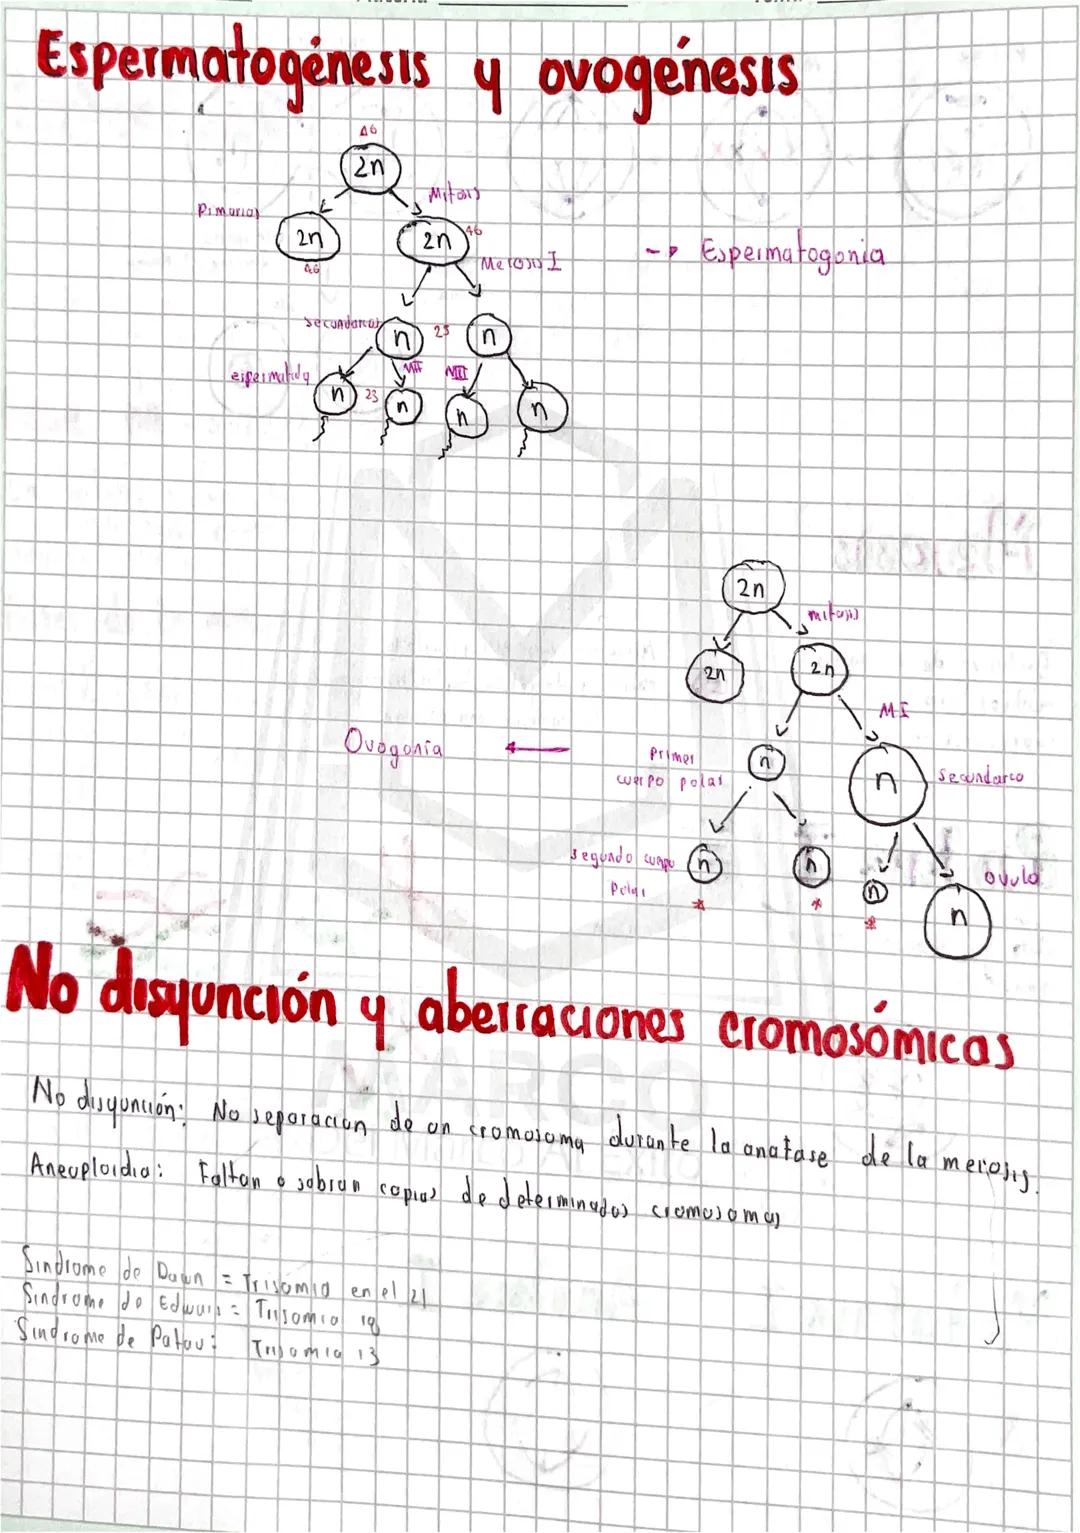 Espermatogénesis y ovogénesis
46
2n
Mitosis
Primarias
2n
2n
46
46
Meiosis I
--> Espermatogonia
secundarias
n
23
n
espermatida
MII
MII
n
23
n
n
n
2n
mitosis
2n
2n
MI
Ovogonía
primer
cuerpo polar
n
n
Secundario
segundo cuerpo
Polar
n
n
n
n
óvulo
No disyunción y aberraciones cromosómicas
MARCO
No disyunción: No separacion de un cromosoma durante la anafase de la meiosis.
Aneuploidia: Faltan o sobran copias de determinados cromosomas
Sindrome de Dawn = Trisomia en el 21
Sindrome de Edwars = Trisomia 18
Sindrome de Patau: Trisomia 13